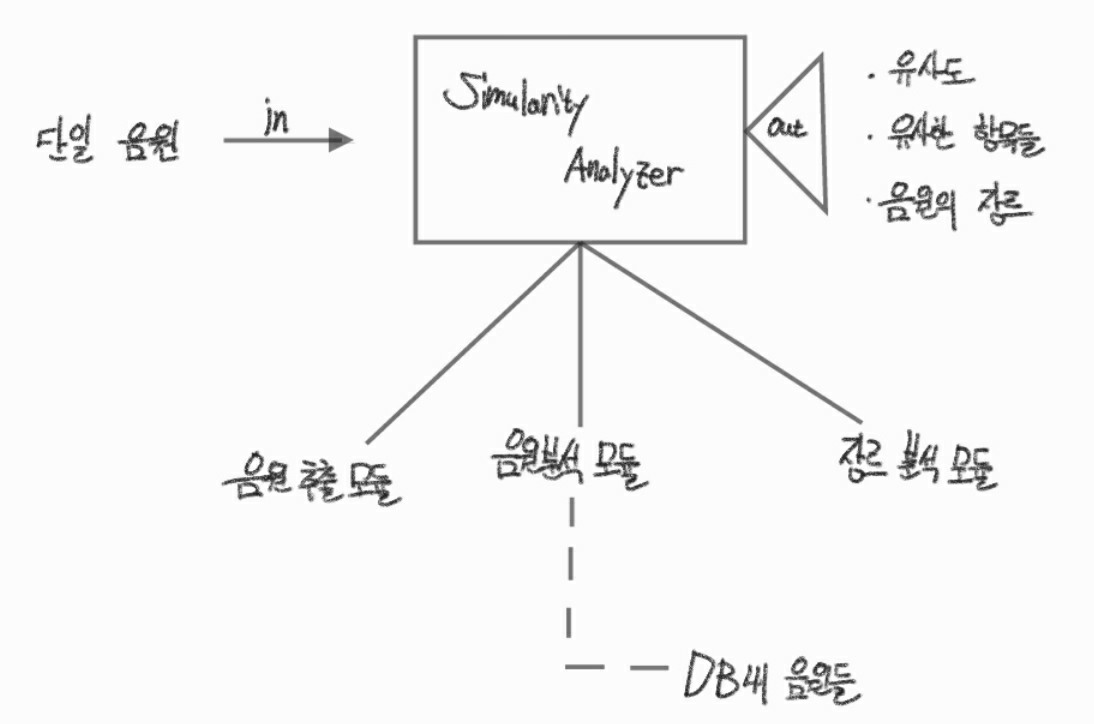 단일 음원
in
Simularity
Analyzer
out
· 유사도
· 유사한 항목들
· 음원의 장르
음원 추출 모듈
음원분석 모듈
장르 분석 모듈
DB내 음원들